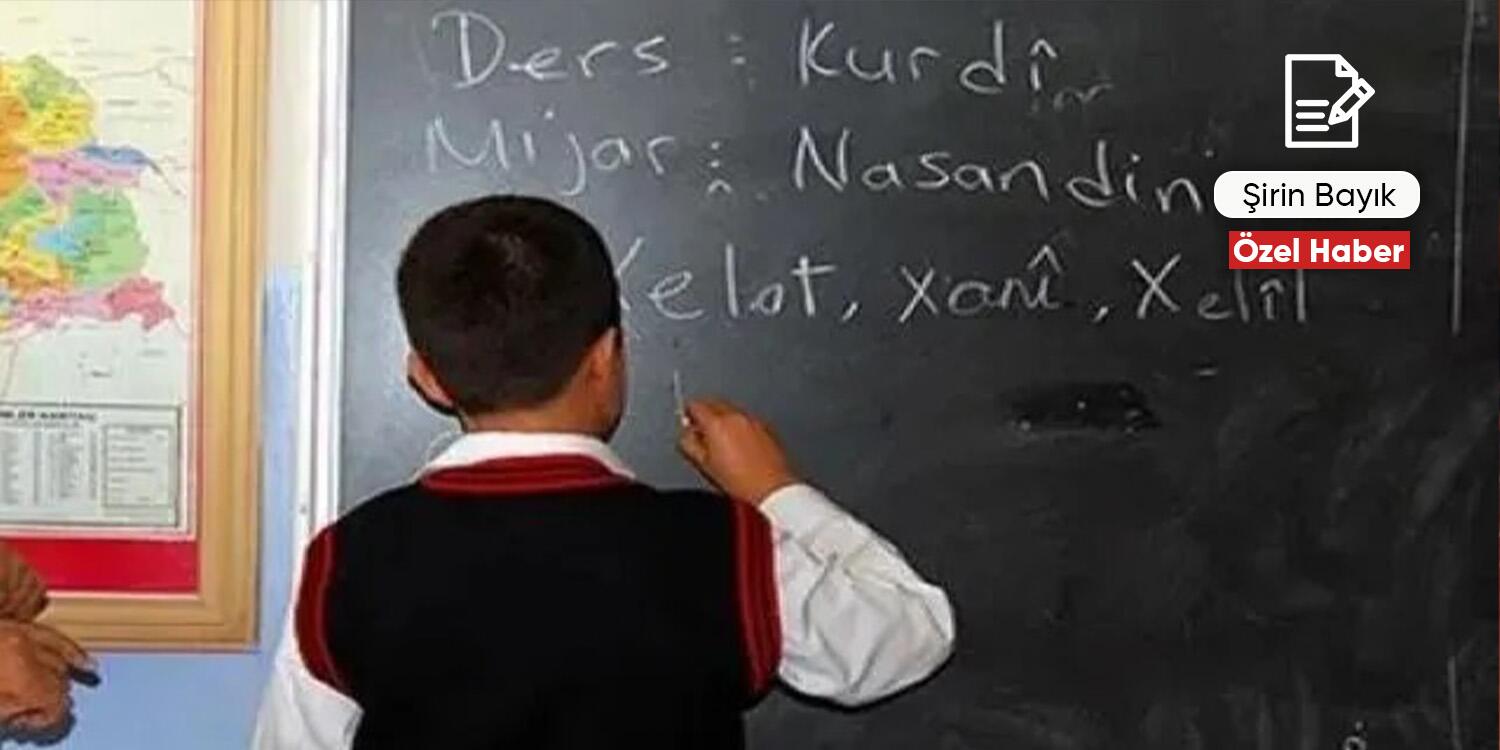 Ders : Kurdî
Mijar : Nasandin
Xelat, Xanî, Xelîl
Şirin Bayık
Özel Haber